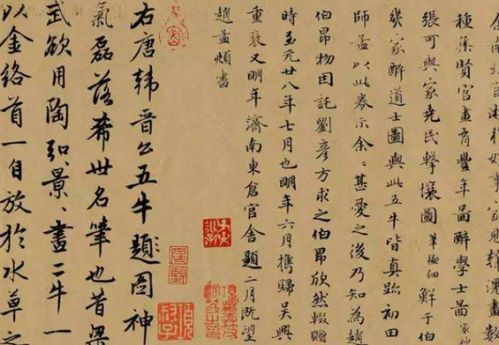 種集賢官畫有豐年圖醉學士圖冣
張可與家堯民擊壤圖筆極細鮮于伯
幾家醉道士圖與此五牛皆真跡初田
師孟以此卷示余〻甚愛之後乃知為趙
伯昂物因託劉彥方求之伯昂欣然輟贈
時至元廿八年七月也明年六月攜歸吳興
重裝又明年濟南東倉官舍題二月既望
趙孟頫書
右唐韓晉公五牛圖神
氣磊落希世名筆也昔梁
武欲用陶弘景畫二牛一
以金絡首一自放於水草之